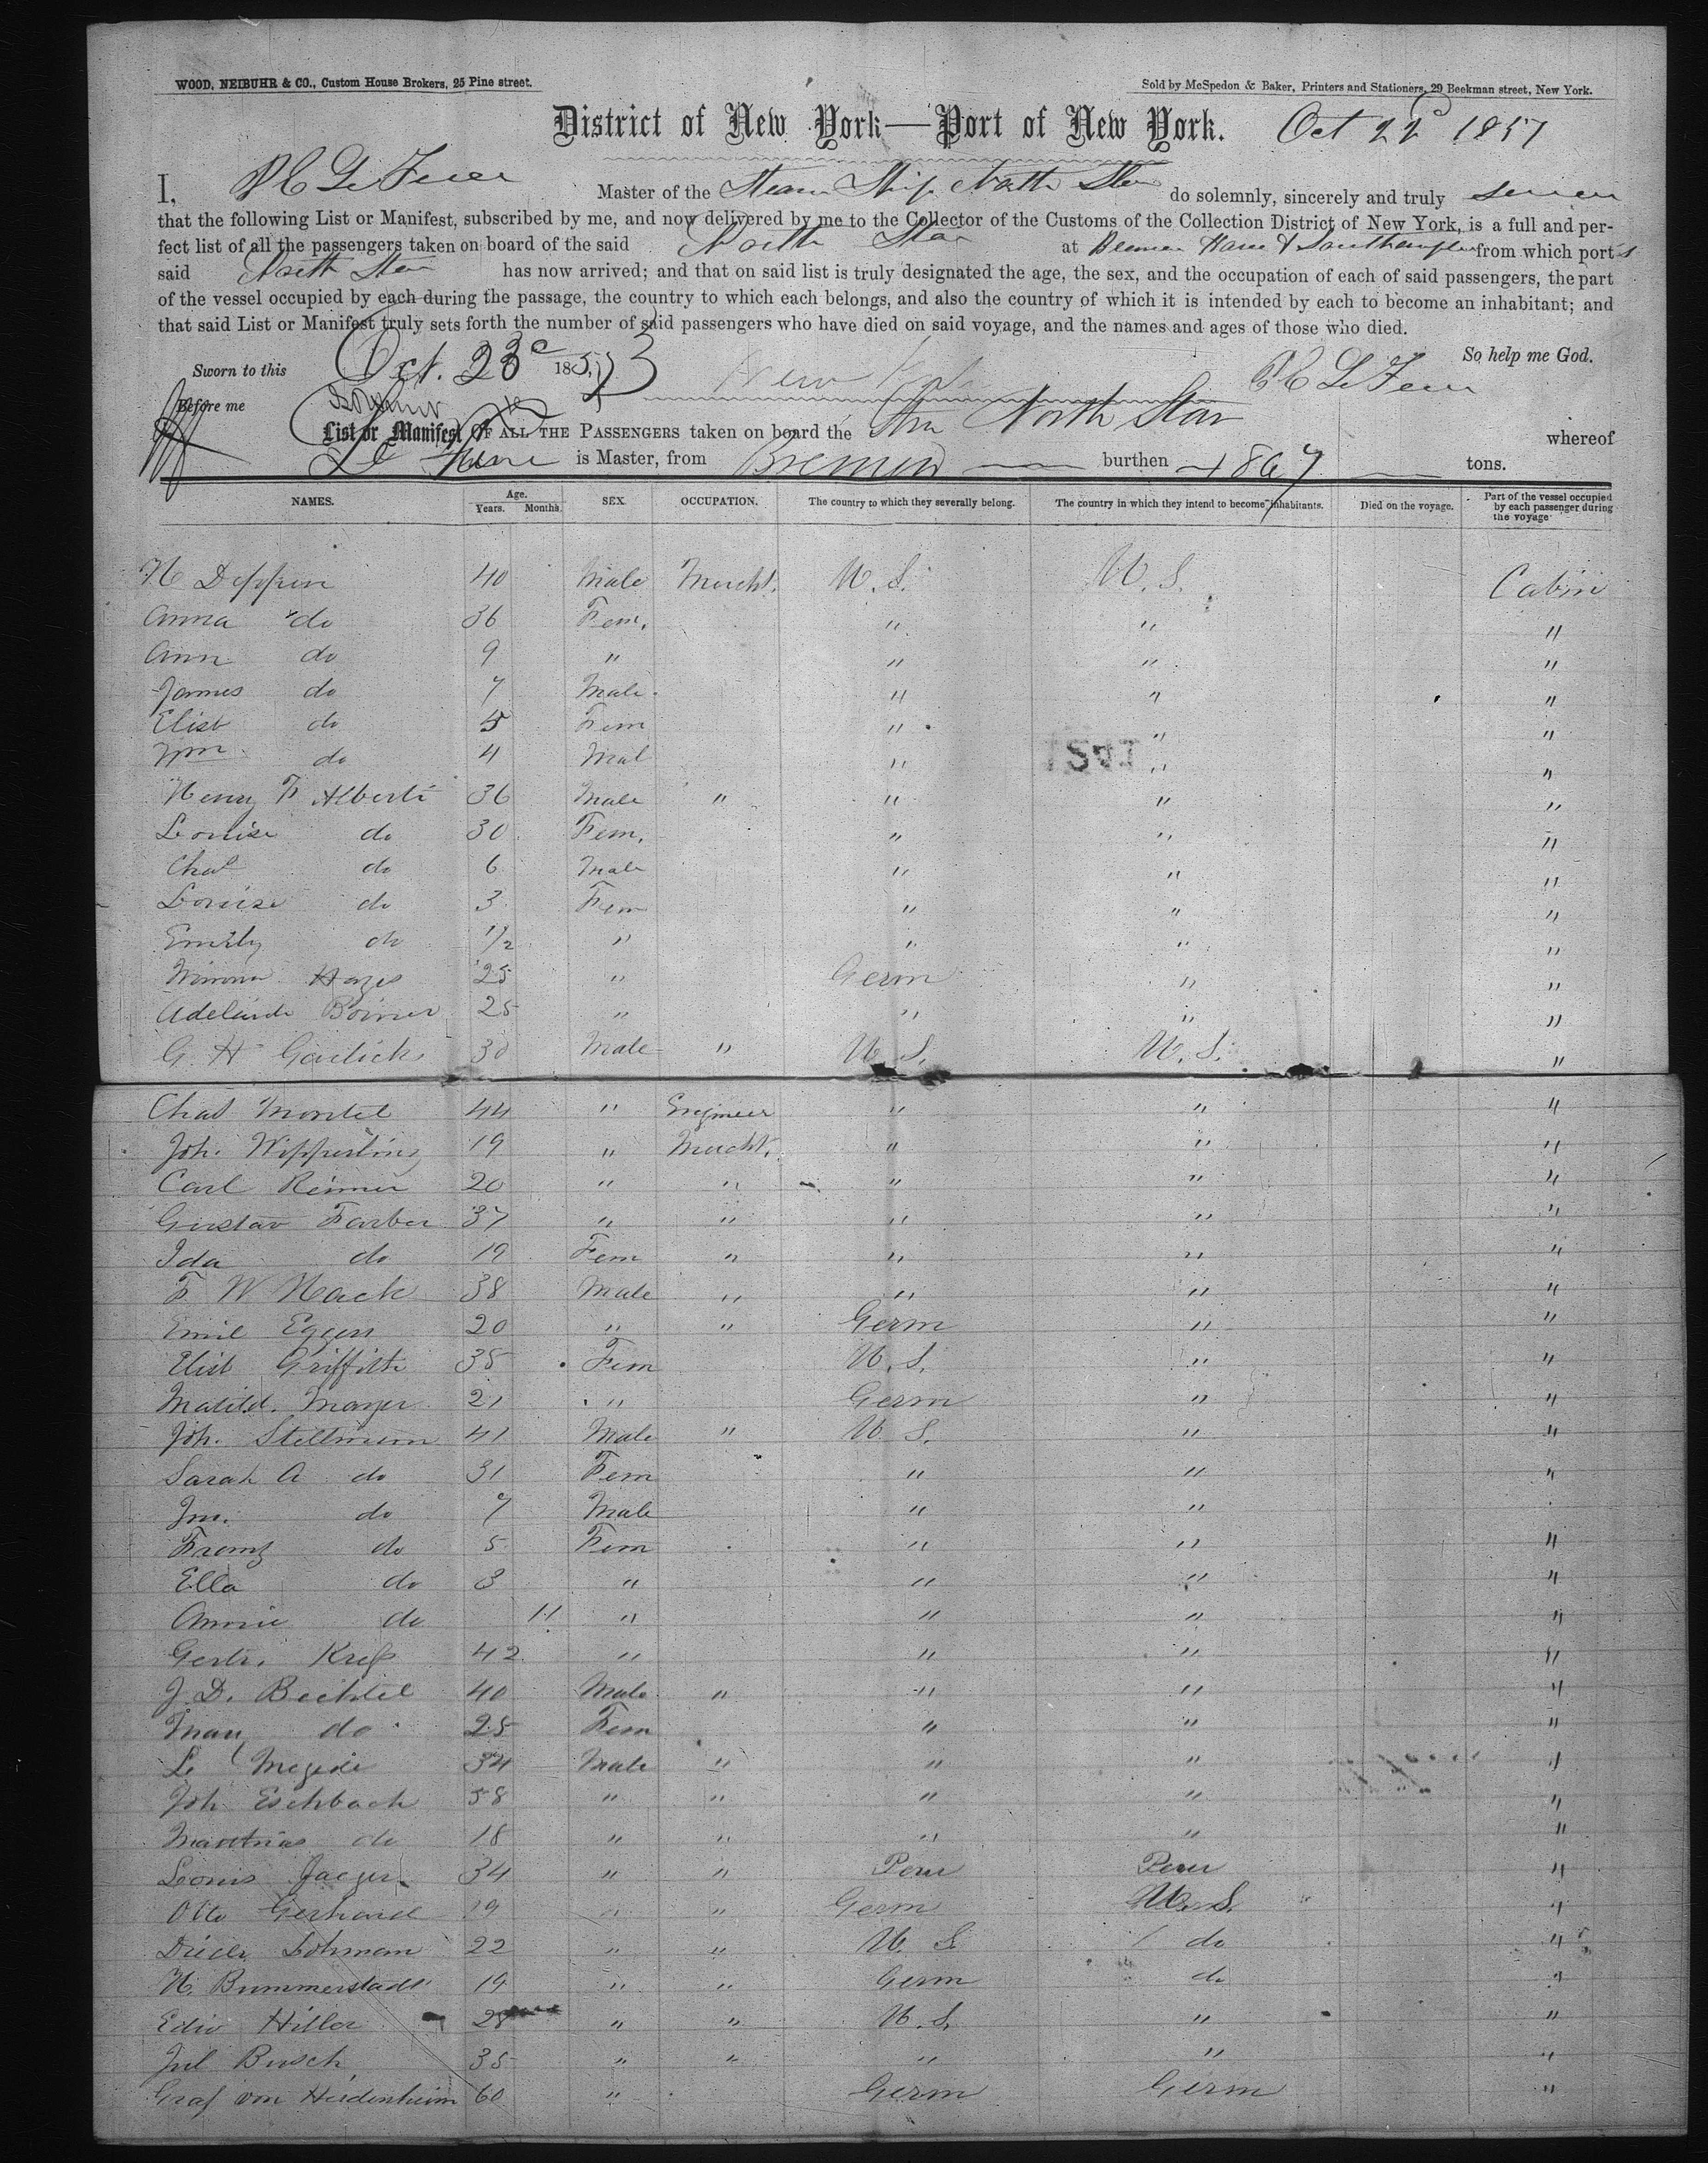 WOOD, NEIBUHR & CO., Custom House Brokers, 25 Pine street.
Sold by McSpedon & Baker, Printers and Stationers, 29 Beekman street, New York.
District of New York—Port of New York. Oct 22d 1857
I, P E Le Fevre Master of the Steam Ship North Star do solemnly, sincerely and truly swear
that the following List or Manifest, subscribed by me, and now delivered by me to the Collector of the Customs of the Collection District of New York, is a full and per-
fect list of all the passengers taken on board of the said North Star at Bremen Havre & Southampton from which ports
said North Star has now arrived; and that on said list is truly designated the age, the sex, and the occupation of each of said passengers, the part
of the vessel occupied by each during the passage, the country to which each belongs, and also the country of which it is intended by each to become an inhabitant; and
that said List or Manifest truly sets forth the number of said passengers who have died on said voyage, and the names and ages of those who died.
So help me God.
Sworn to this Oct. 23d 1857 P E Le Fevre
Before me
List or Manifest OF ALL THE PASSENGERS taken on board the Str North Star whereof
Le Fevre is Master, from Bremen burthen 1867 tons.
NAMES. Age. Years. Months. SEX. OCCUPATION. The country to which they severally belong. The country in which they intend to become inhabitants. Died on the voyage. Part of the vessel occupied by each passenger during the voyage
H Deppen 40 Male Mercht. U.S. U.S. Cabin
Anna do 36 Fem. " " "
Ann do 9 " " " "
James do 7 Male " " "
Elisb do 5 Fem " " "
Wm do 4 Mal " " "
Henry F Alberti 36 Male " " " "
Louise do 30 Fem. " " "
Chas do 6 Male " " "
Louise do 3 Fem " " "
Emily do 1/2 " " " "
Hayes 25 " Germ " "
Adelaide 25 " " " "
G. H Garlick 30 Male " U S. U. S. "
Chas Montel 44 " Engineer " " "
Joh. Wipperling 19 " Mercht. " " "
Carl Reimer 20 " " " " "
Gustav Farber 37 " " " " "
Ida do 19 Fem " " " "
F W Hack 38 Male " " " "
Emil Eggers 20 " " Germ " "
Elisb Griffith 35 Fem U. S. " "
Matild. Mayer 21 " Germ " "
Joh. Stellmann 41 Male " U S. " "
Sarah A do 31 Fem " " "
Jno. do 7 Male " "
Franz do 5 Fem " " "
Ella do 3 " " " "
Annie do 11 " " " "
Gertr. Kreß 42 " " " "
J. D. Bechtel 40 Male " " " "
Mary do 25 Fem " " "
L 34 Male " " " "
Joh Eschbach 58 " " " " "
Marthias do 18 " " " " "
Louis Jaeger 34 " " Peru Peru "
Otto Gerhard 19 " " Germ U. S. "
Diedr. Lohman 22 " " U. S. do "
H. Bummerstadt 19 " " Germ do "
Edw Hiller 28 " " U. S. " "
Jul Busch 35 " " " " "
Graf von Heidenheim 60 " Germ Germ "